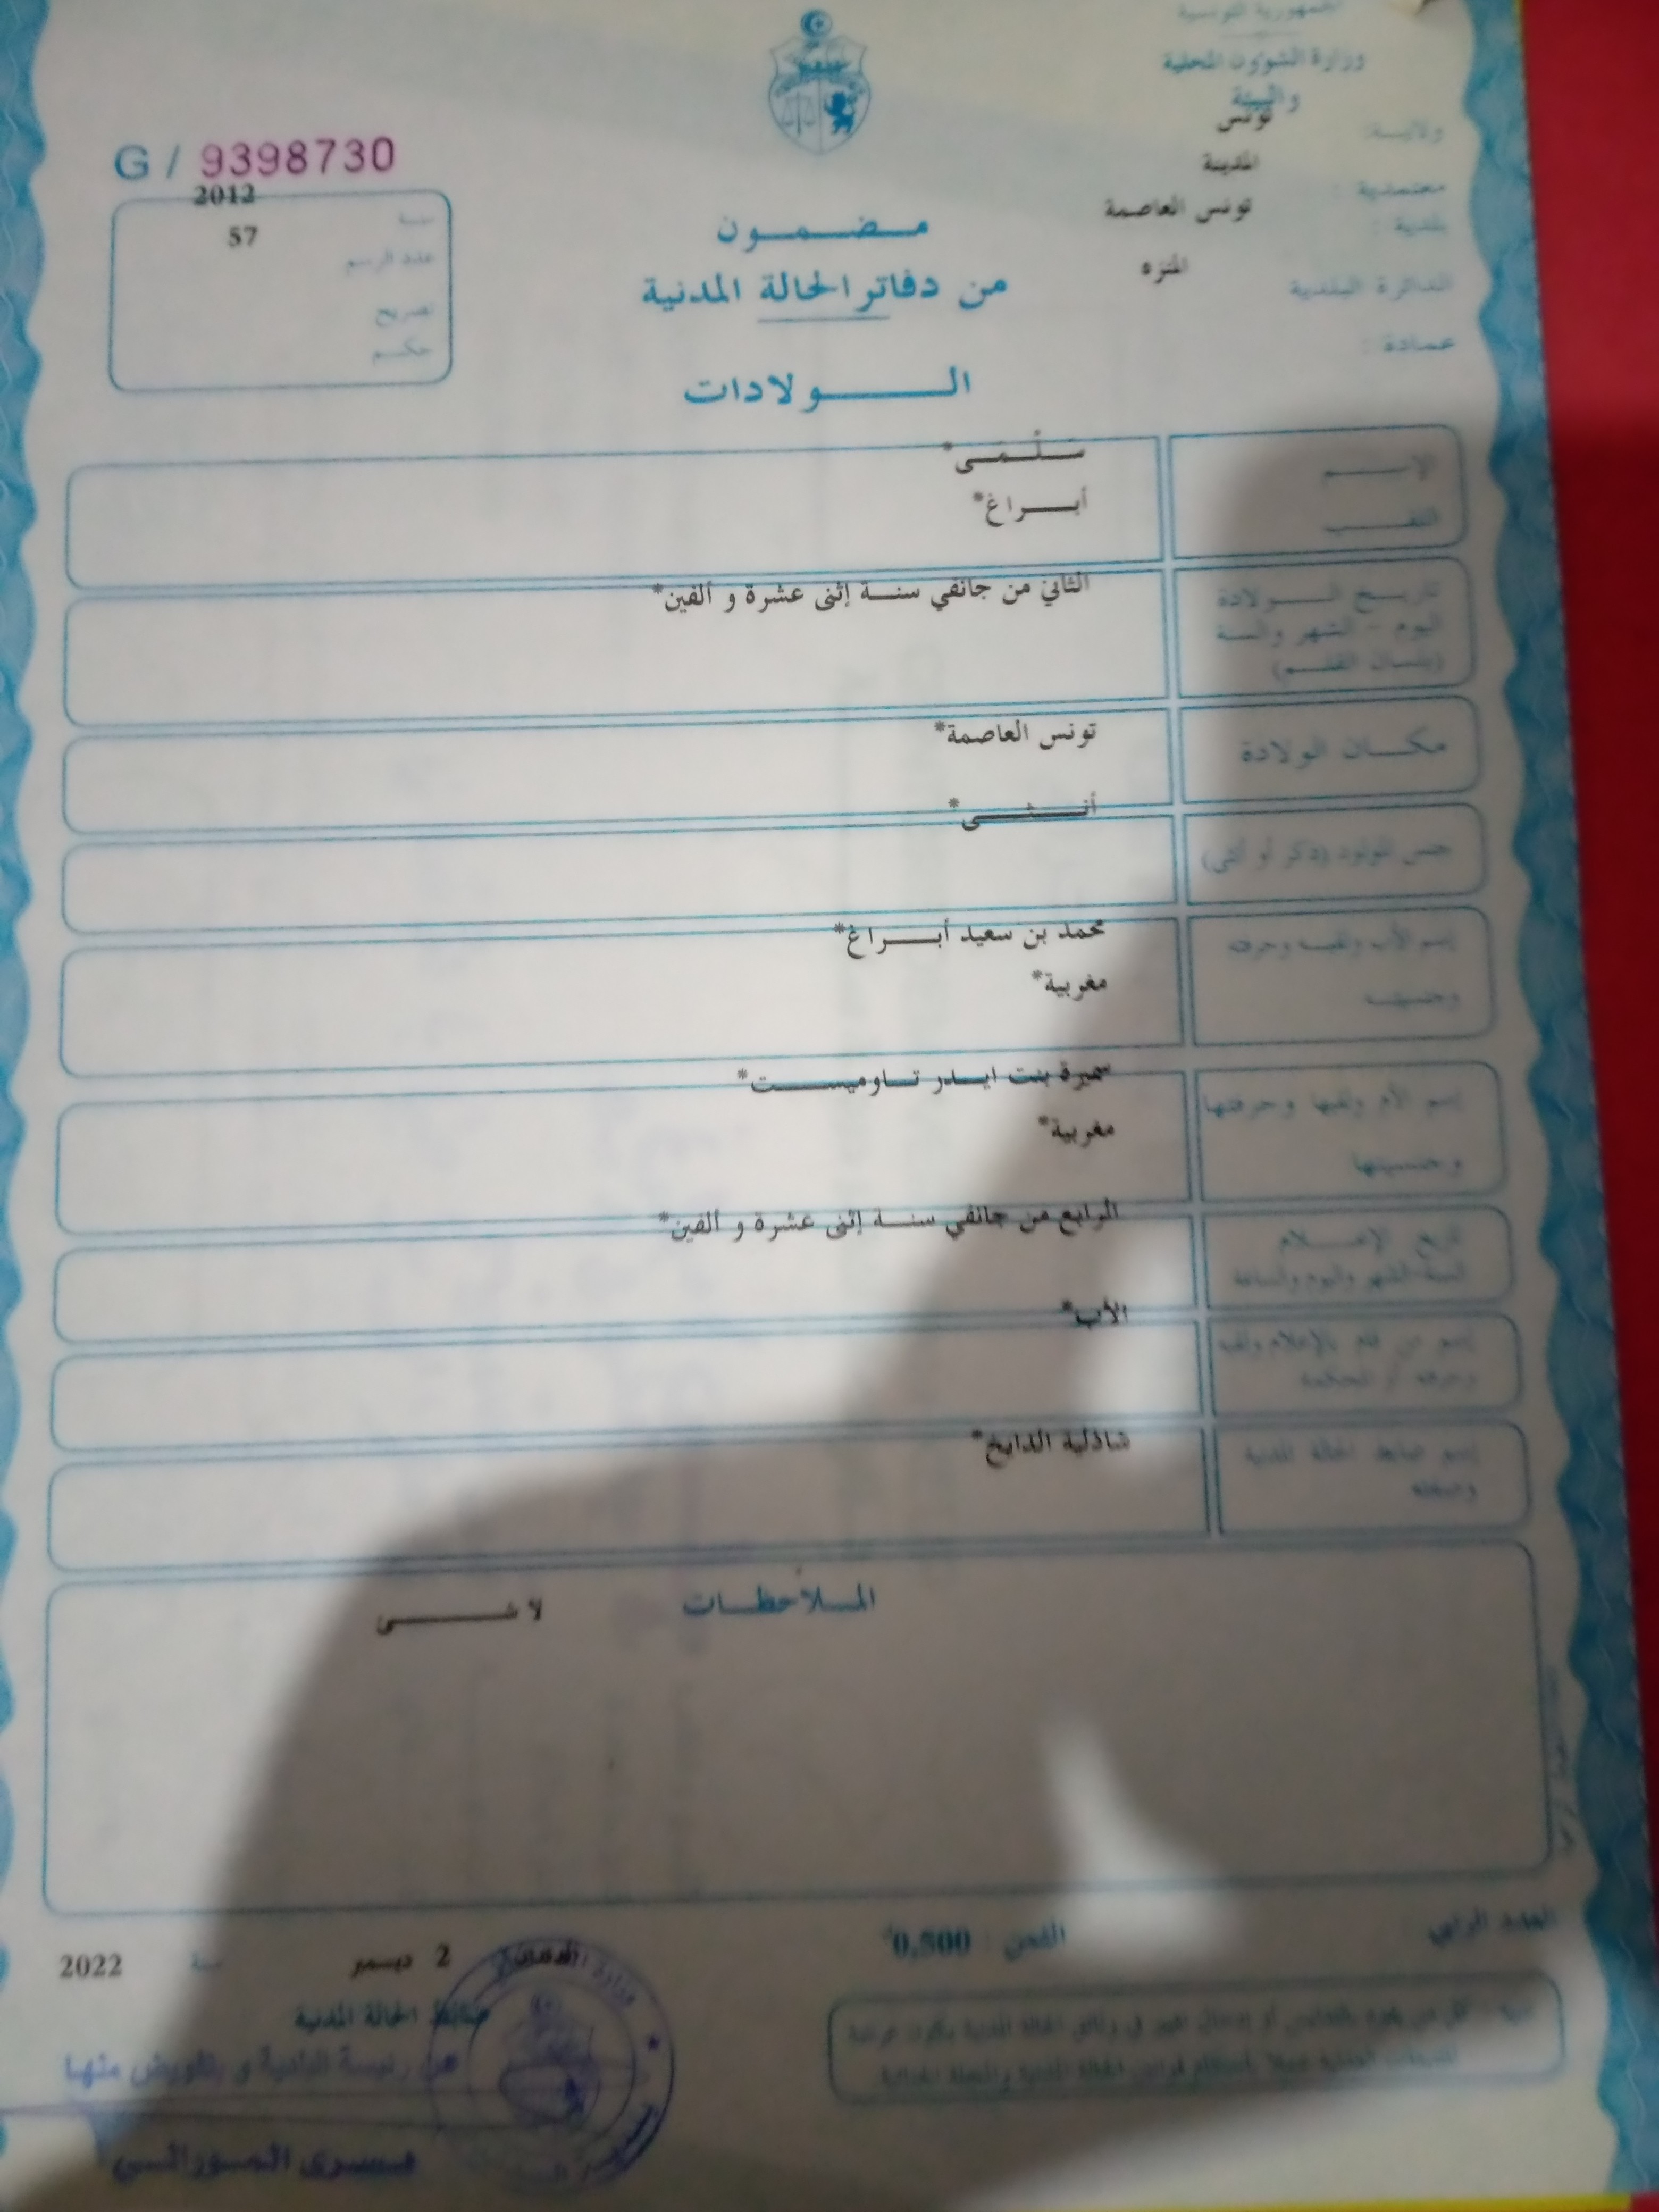 الجمهورية التونسية
وزارة الشؤون المحلية
والبيئة
ولاية: تونس
معتمدية : المدينة
بلدية : تونس العاصمة
الدائرة البلدية المنزه
عمادة :
G / 9398730
سنة 2012
عدد الرسم 57
تصريح
حكم
مضمون
من دفاتر الحالة المدنية
الولادات
الإسم سلمى*
اللقب أبراغ*
تاريخ الولادة الثاني من جانفي سنة إثنى عشرة و ألفين*
اليوم - الشهر والسنة
(بلسان القلم)
مكان الولادة تونس العاصمة*
جنس المولود (ذكر أو أنثى) أنثى*
إسم الأب ولقبه وحرفته محمد بن سعيد أبراغ*
وجنسيته مغربية*
إسم الأم ولقبها وحرفتها سميرة بنت ايدر تاوميست*
وجنسيتها مغربية*
تاريخ الإعلام الرابع من جانفي سنة إثنى عشرة و ألفين*
السنة-الشهر واليوم والساعة
إسم من قام بالإعلام ولقبه الأب*
وحرفته / المحكمة
إسم ضابط الحالة المدنية شاذلية الدايخ*
وصفته
الملاحظات لا شىء
العدد الرتبي
الثمن : 0,500
2 ديسمبر سنة 2022
ضابط الحالة المدنية
عن رئيسة البلدية و بتفويض منها